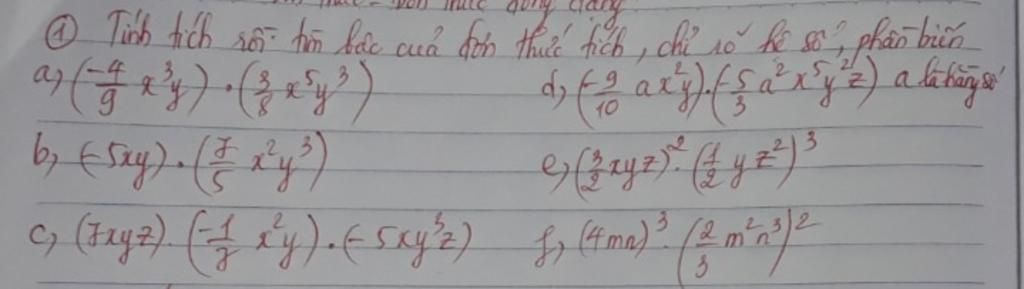 ① Tính tích rồi tìm bậc của đơn thức tích, chỉ rõ hệ số, phần biến
a, (-4/9 x³y) . (3/8 x⁵y³) d, (-9/10 ax²y).(-5/3 a²x⁵y²z) a là hằng số
b, (-5xy) . (7/5 x²y³) e, (3/2 xyz)². (1/2 yz²)³
c, (7xyz). (-1/7 x²y) . (-5xy³z) f, (4mn)³ . (2/3 m²n³)²